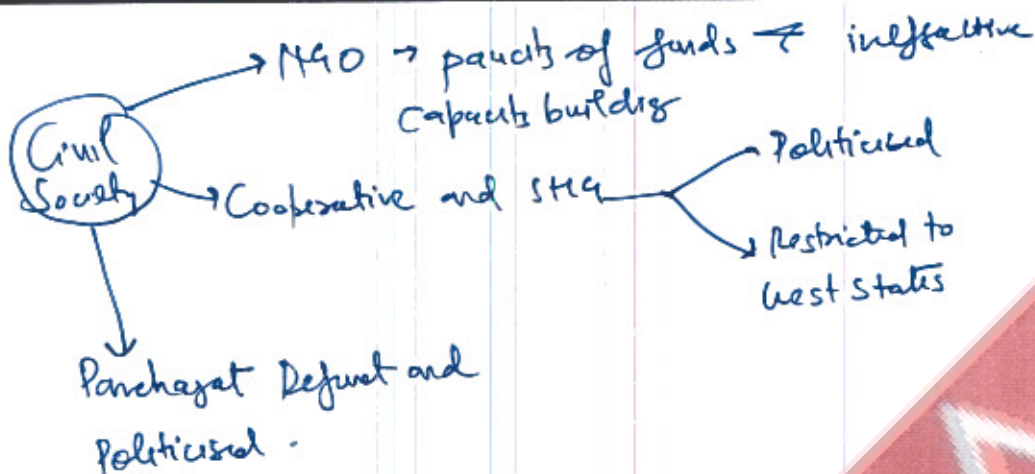 Civil Society
→ NGO → paucity of funds & ineffective
capacity building
→ Cooperative and SHG
→ Politicised
→ Restricted to
West States
Panchayat Defunct and
Politicised.